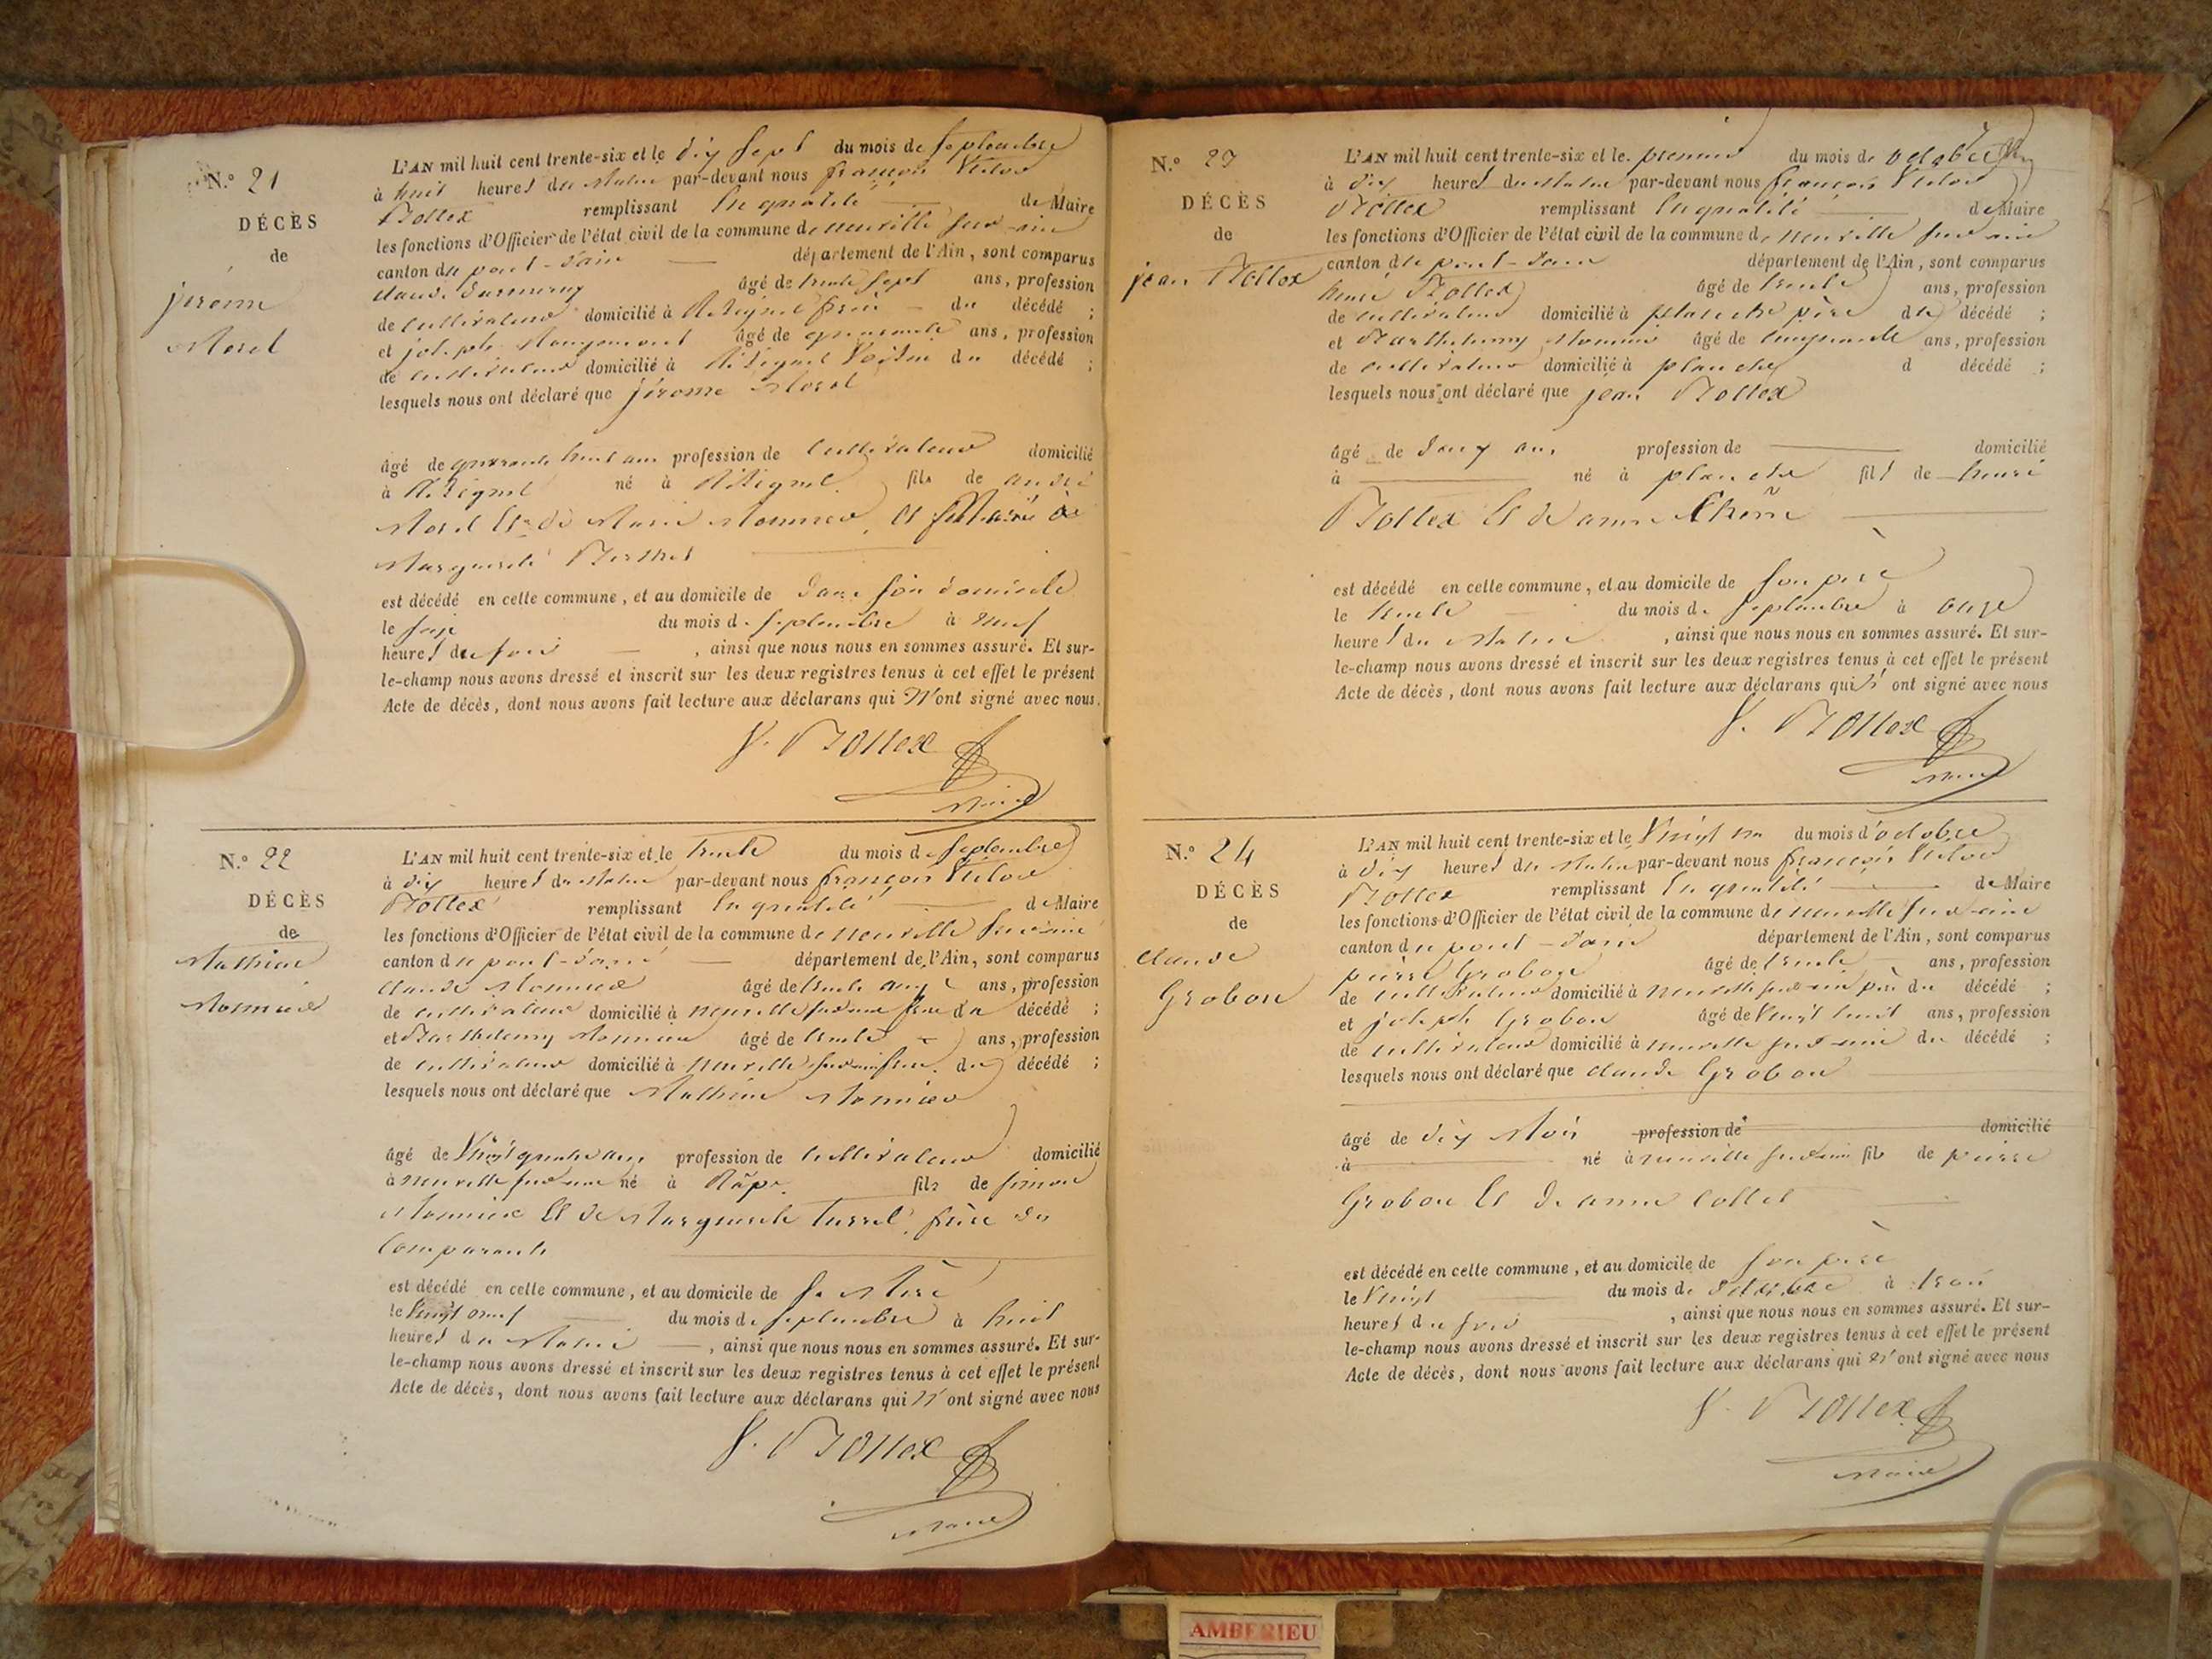 N.° 21
DÉCÈS
de
jerome
Morel
L'AN mil huit cent trente-six et le dix sept du mois de septembre
à huit heures du Matin par-devant nous françois Victor
Bollex remplissant en qualité de Maire
les fonctions d'Officier de l'état civil de la commune de neuville sur ain
canton du pont-d'ain département de l'Ain, sont comparus
claude âgé de trente sept ans, profession
de cultivateur domicilié à du décédé ;
et joseph âgé de quarante ans, profession
de cultivateur domicilié à voisin du décédé ;
lesquels nous ont déclaré que jérome Morel
âgé de quarante huit ans profession de cultivateur domicilié
à né à fils de andré
Morel et de Marie Monnier, et Marié à
Marguerite Berthet
est décédé en cette commune, et au domicile de dans son domicile
le seize du mois de septembre à neuf
heures du soir, ainsi que nous nous en sommes assuré. Et sur-
le-champ nous avons dressé et inscrit sur les deux registres tenus à cet effet le présent
Acte de décès, dont nous avons fait lecture aux déclarans qui N'ont signé avec nous.
V. Bollex
Maire
N.° 22
DÉCÈS
de
Mathieu
Monnier
L'AN mil huit cent trente-six et le trente du mois de septembre
à dix heures du Matin par-devant nous françois Victor
Bollex remplissant en qualité de Maire
les fonctions d'Officier de l'état civil de la commune de neuville sur ain
canton du pont-d'ain département de l'Ain, sont comparus
claude Monnier âgé de trente ans, profession
de cultivateur domicilié à neuville sur ain frere du décédé ;
et Barthelemy Monnier âgé de trente ans, profession
de cultivateur domicilié à neuville sur ain frere du décédé ;
lesquels nous ont déclaré que Mathieu Monnier
âgé de Vingt quatre ans profession de cultivateur domicilié
à neuville sur ain né à Râpe fils de simon
Monnier et de Marguerite turrel, frère des
Comparants
est décédé en cette commune, et au domicile de sa Mère
le Vingt neuf du mois de septembre à huit
heures du Matin, ainsi que nous nous en sommes assuré. Et sur-
le-champ nous avons dressé et inscrit sur les deux registres tenus à cet effet le présent
Acte de décès, dont nous avons fait lecture aux déclarans qui N'ont signé avec nous
V. Bollex
Maire
N.° 23
DÉCÈS
de
jean Bollex
L'AN mil huit cent trente-six et le premier du mois de octobre
à dix heures du Matin par-devant nous françois Victor
Bollex remplissant en qualité de Maire
les fonctions d'Officier de l'état civil de la commune de neuville sur ain
canton du pont-d'ain département de l'Ain, sont comparus
henri Bollex âgé de trente ans, profession
de cultivateur domicilié à planche père du décédé ;
et Barthelemy Monnier âgé de cinquante ans, profession
de cultivateur domicilié à planche d décédé ;
lesquels nous ont déclaré que jean Bollex
âgé de deux ans profession de domicilié
à né à planche fils de henri
Bollex et de anne Chêne
est décédé en cette commune, et au domicile de son pere
le trente du mois de septembre à onze
heures du Matin, ainsi que nous nous en sommes assuré. Et sur-
le-champ nous avons dressé et inscrit sur les deux registres tenus à cet effet le présent
Acte de décès, dont nous avons fait lecture aux déclarans qui N'ont signé avec nous
V. Bollex
Maire
N.° 24
DÉCÈS
de
claude
Grobon
L'AN mil huit cent trente-six et le Vingt un du mois d'octobre
à dix heures du Matin par-devant nous françois Victor
Bollex remplissant en qualité de Maire
les fonctions d'Officier de l'état civil de la commune de neuville sur ain
canton du pont-d'ain département de l'Ain, sont comparus
pierre Grobon âgé de trente ans, profession
de cultivateur domicilié à neuville sur ain père du décédé ;
et joseph Grobon âgé de Vingt huit ans, profession
de cultivateur domicilié à neuville sur ain du décédé ;
lesquels nous ont déclaré que claude Grobon
âgé de dix Mois profession de domicilié
à né à neuville sur ain fils de pierre
Grobon et de anne Collet
est décédé en cette commune, et au domicile de son pere
le Vingt du mois de octobre à trois
heures du soir, ainsi que nous nous en sommes assuré. Et sur-
le-champ nous avons dressé et inscrit sur les deux registres tenus à cet effet le présent
Acte de décès, dont nous avons fait lecture aux déclarans qui N'ont signé avec nous
V. Bollex
Maire
AMBERIEU